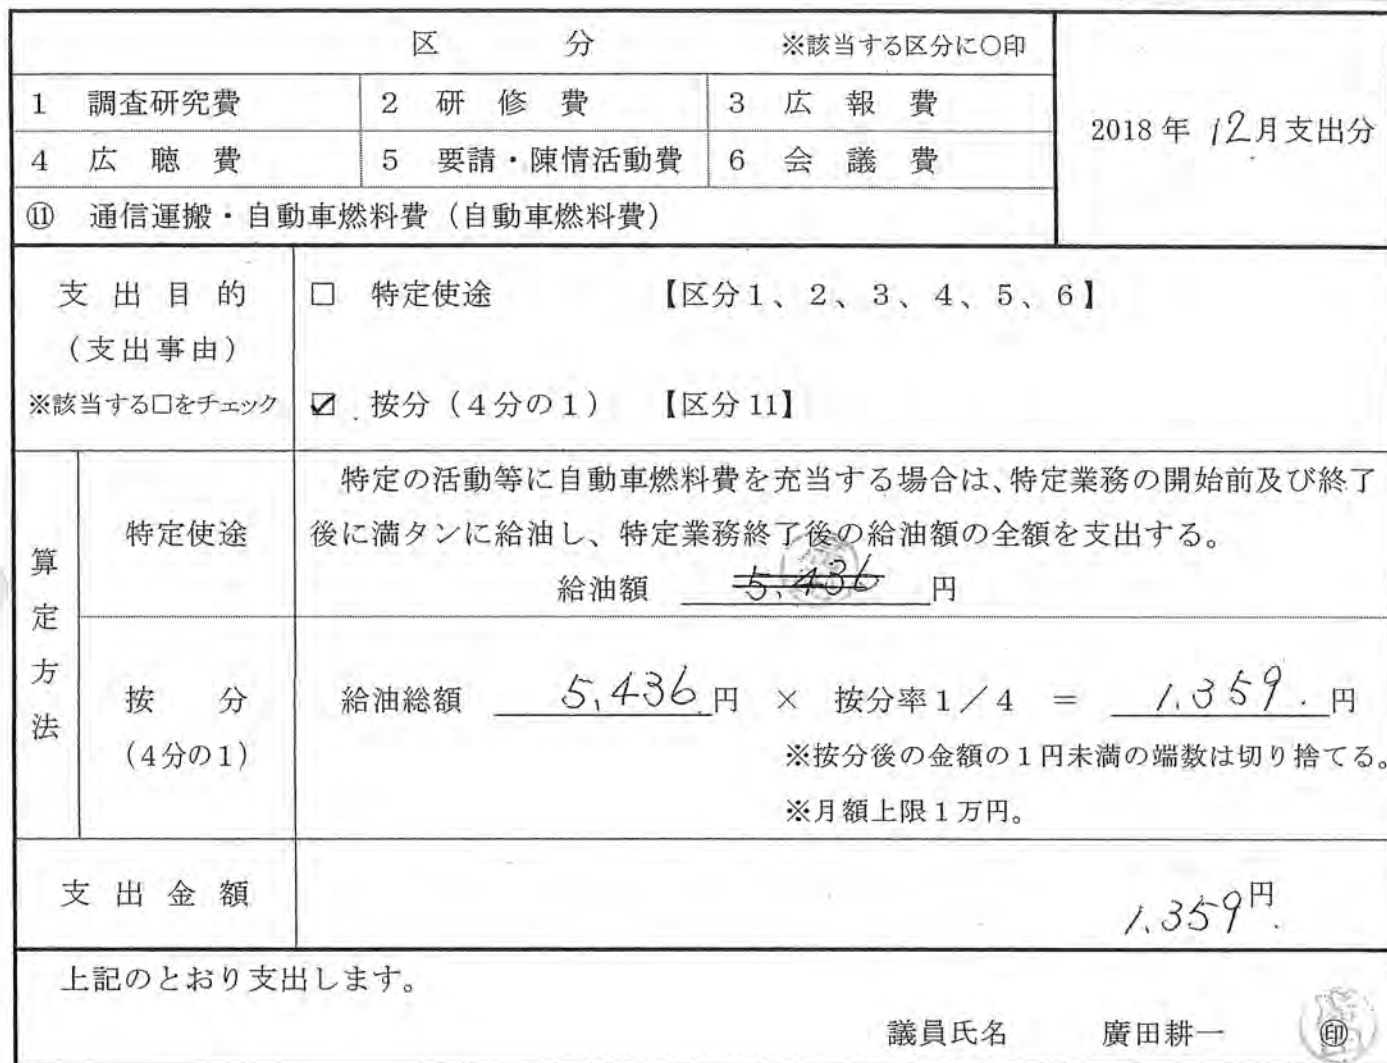 区　分　※該当する区分に○印
1　調査研究費　2　研修費　3　広報費
2018年 12月支出分
4　広聴費　5　要請・陳情活動費　6　会議費
⑪　通信運搬・自動車燃料費（自動車燃料費）
支出目的
（支出事由）
※該当する□をチェック
□　特定使途　【区分1、2、3、4、5、6】
☑　按分（4分の1）　【区分11】
算定方法
特定使途
特定の活動等に自動車燃料費を充当する場合は、特定業務の開始前及び終了
後に満タンに給油し、特定業務終了後の給油額の全額を支出する。
給油額　5,436　円
按　分
（4分の1）
給油総額　5,436 円　×　按分率1／4　＝　1,359. 円
※按分後の金額の1円未満の端数は切り捨てる。
※月額上限1万円。
支出金額
1,359円.
上記のとおり支出します。
議員氏名　廣田耕一　㊞